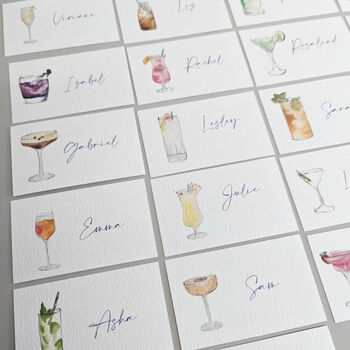 Liz
Isabel
Rachel
Rosalind
Gabriel
Lesley
Emma
Julie
Asha
Sam